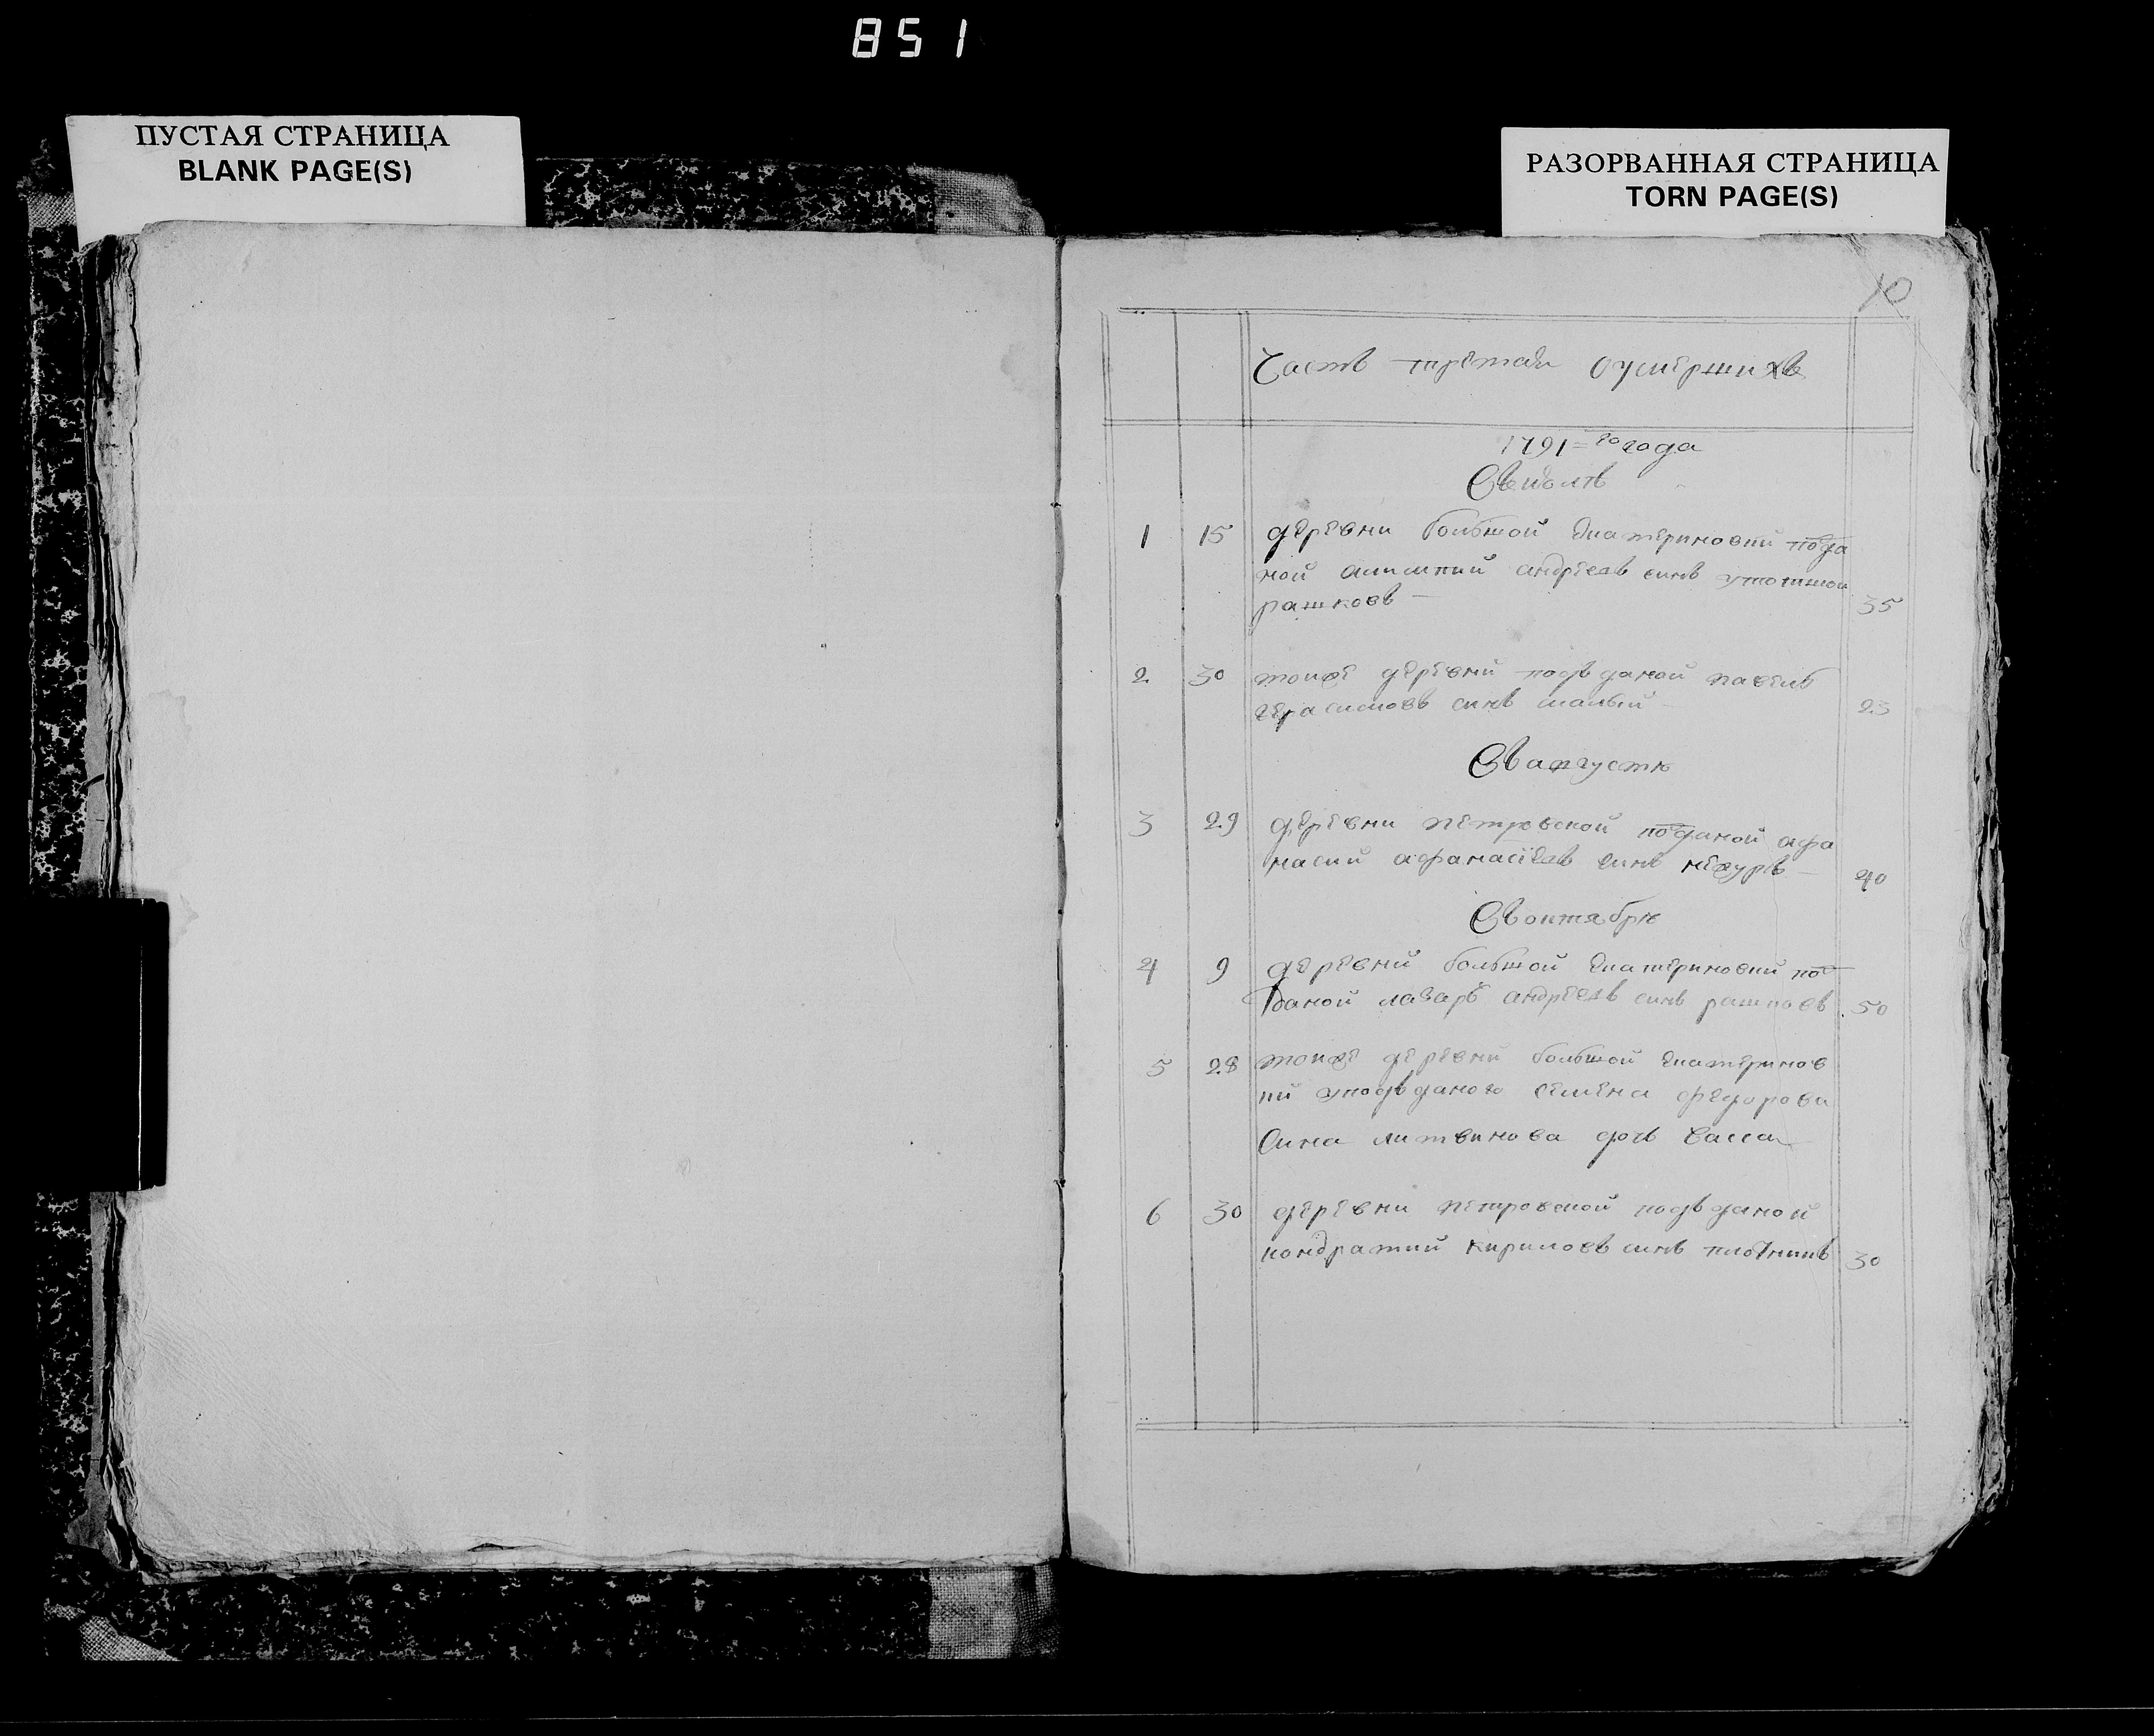 851
ПУСТАЯ СТРАНИЦА
BLANK PAGE(S)
РАЗОРВАННАЯ СТРАНИЦА
TORN PAGE(S)
10
Часть третая оумершихъ
1791=го года
Въ июлѣ
1 15 деревни болшой екатериновки пода
ной алимпий андреевъ синъ утопшой
рашковъ 35
2 30 тоижѐ деревни подъданой павелъ
герасимовъ синъ малый 23
Въ августѣ
3 29 деревни петровской поданой афа
насий афанасиевъ синъ нехурѣ 40
Въ октябрѣ
4 9 деревни болшой екатериновки по
даной лазаръ андреевъ синъ рашковъ 50
5 28 тоижѐ деревни болшой екатеринов
ки уподъданого семена федорова
сина литвинова дочъ васса
6 30 деревни петровской подъданой
кондратий кириловъ синъ плотникъ 30